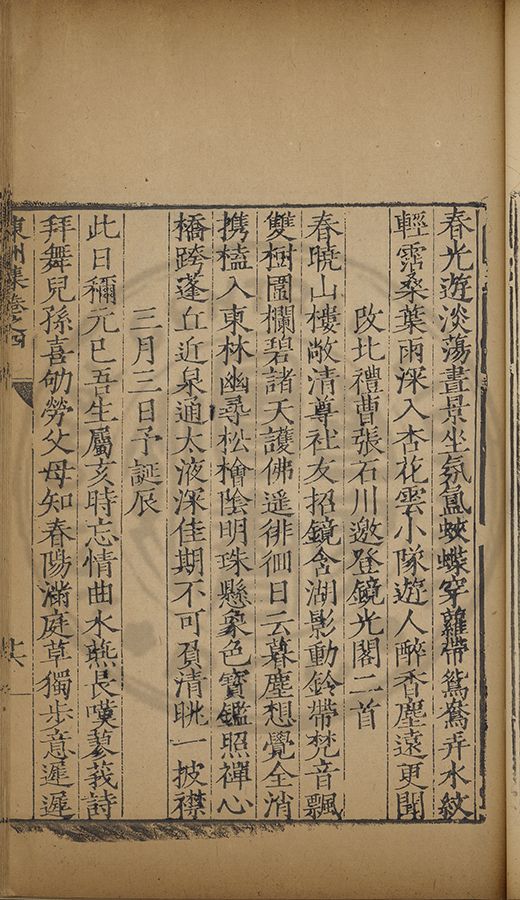 春光遊淡蕩晝景坐氛氳蛺蝶穿蘿帶鴛鴦弄水紋
輕霑桑葉雨深入杏花雲小隊遊人醉香塵遠更聞
改比禮曹張石川邀登鏡光閣二首
春曉山樓敞清尊社友招鏡含湖影動鈴帶梵音飄
雙樹圍欄碧諸天護佛遥徘徊日云暮塵想覺全消
携榼入東林幽尋松檜陰明珠懸象色寳鑑照禪心
橋跨蓬丘近泉通太液深佳期不可負清眺一披襟
三月三日予誕辰
此日稱元巳吾生屬亥時忘情曲水燕長嘆蓼莪詩
拜舞兒孫喜劬勞父母知春陽滿庭草獨步意遲遲
東州集卷四